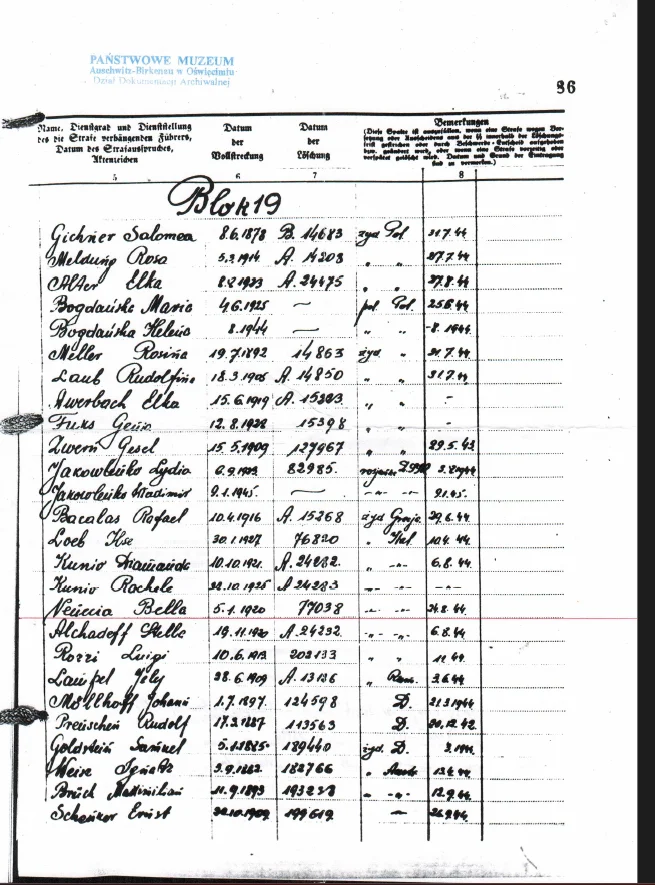 PAŃSTWOWE MUZEUM
Auschwitz-Birkenau w Oświęcimiu
Dział Dokumentacji Archiwalnej
86
Name, Dienstgrad und Dienststellung des die Strafe verhängenden Führers, Datum des Strafausspruches, Aktenzeichen
Datum der Vollstreckung
Datum der Löschung
Bemerkungen
(Diese Spalte ist auszufüllen, wenn eine Strafe wegen oder Ausscheidens aus der SS innerhalb der gestrichen oder durch Beschwerde-Entscheid aufgehoben bzw. geändert wird, oder wenn eine Strafe vorzeitig oder verspätet gelöscht wird. Datum und Grund der Eintragung sind zu vermerken.)
5 6 7 8
Blok 19
Gichner Salomea 8.6.1878 B. 14683 żyd Pol. 31.7.44
Meldung Rosa 5.2.1914 A. 14203 " " 27.7.44
Alter Elka A. 24475 " " 27.8.44
Bogdańska Maria 4.6.1925 — pol. Pol. 25.6.44
Bogdańska Helena 8.1944 — " " -8.1944
Meller Rosina 19.7.1892 14863 żyd " 31.7.44
Laub Rudolfine 18.3.1905 A. 14850 " " 31.7.44
Auerbach Elka 15.6.1919 A. 15383 " " -
Fuks Genia 12.8.1928 15398 " " -
Zwern Gesel 15.5.1909 127967 29.5.43
Jakowlenko Lydia 82985.
Jakowlenko Wladimir 9.1.1945. — -"- -"- 9.1.45.
Bacalas Rafael 10.4.1916 A. 15268 żyd 29.6.44
Loeb Ilse 30.1.1927 76820 " 10.4.44
Kunio 10.10.1921. A. 24282. " -"- 6.8.44
Kunio Rachele 22.10.1925 A 24283 -"- -"- -"-
Venecia Bella 5.1.1920 77038 -"- -"- 24.8.44
Alchadeff Stella 19.11.1920 A. 24232. -"- -"- 6.8.44
Rozzi Luigi 10.6.1913 202133 " "
28.6.1909 A. 13136 " 3.6.44
Möllhoff Johann 1.7.1897. 124598 D. 21.3.1944
Preuschen Rudolf 17.3.1887 113563 D. 20.12.42
Goldstein Samuel 189440 żyd. D.
Weise Ignatz 3.9.1882 182766 "
Brüch Maximilian 11.9.1893 193228 " -"- 12.9.44
Schenker Ernst 20.10.1909 199619 — 26.9.44